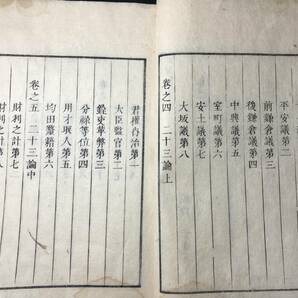 平安議第二
前鎌倉議第三
後鎌倉議第四
中興議第五
室町議第六
安土議第七
大坂議第八
卷之四 二十三論上
君權自治第一
大臣監官第二
分祿等位第四
用才取人第五
均田釐賂第六
卷之五 二十三論中
財利之計第七
財利之計第八